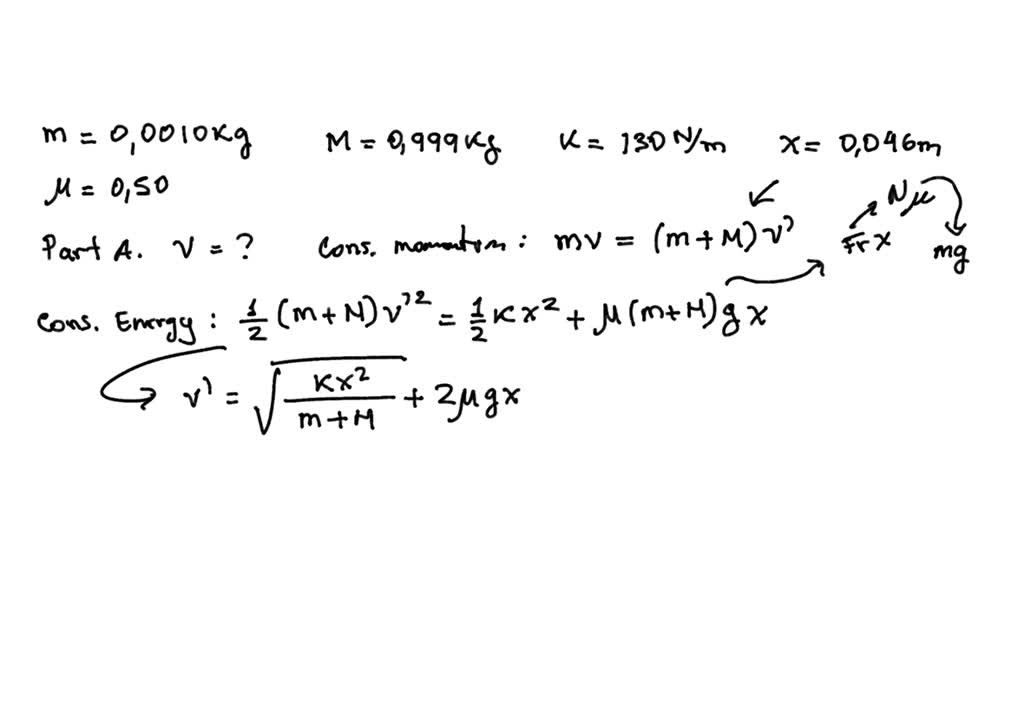 m = 0,0010kg M = 0,999kg K = 130 N/m x = 0,046m
μ = 0,50
Part A. v = ? Cons. momentum: mv = (m+M)v' Fr x Nμ mg
Cons. Energy: 1/2 (m+M)v'² = 1/2 Kx² + μ(m+M)gx
v' = √(Kx²/(m+M)) + 2μgx